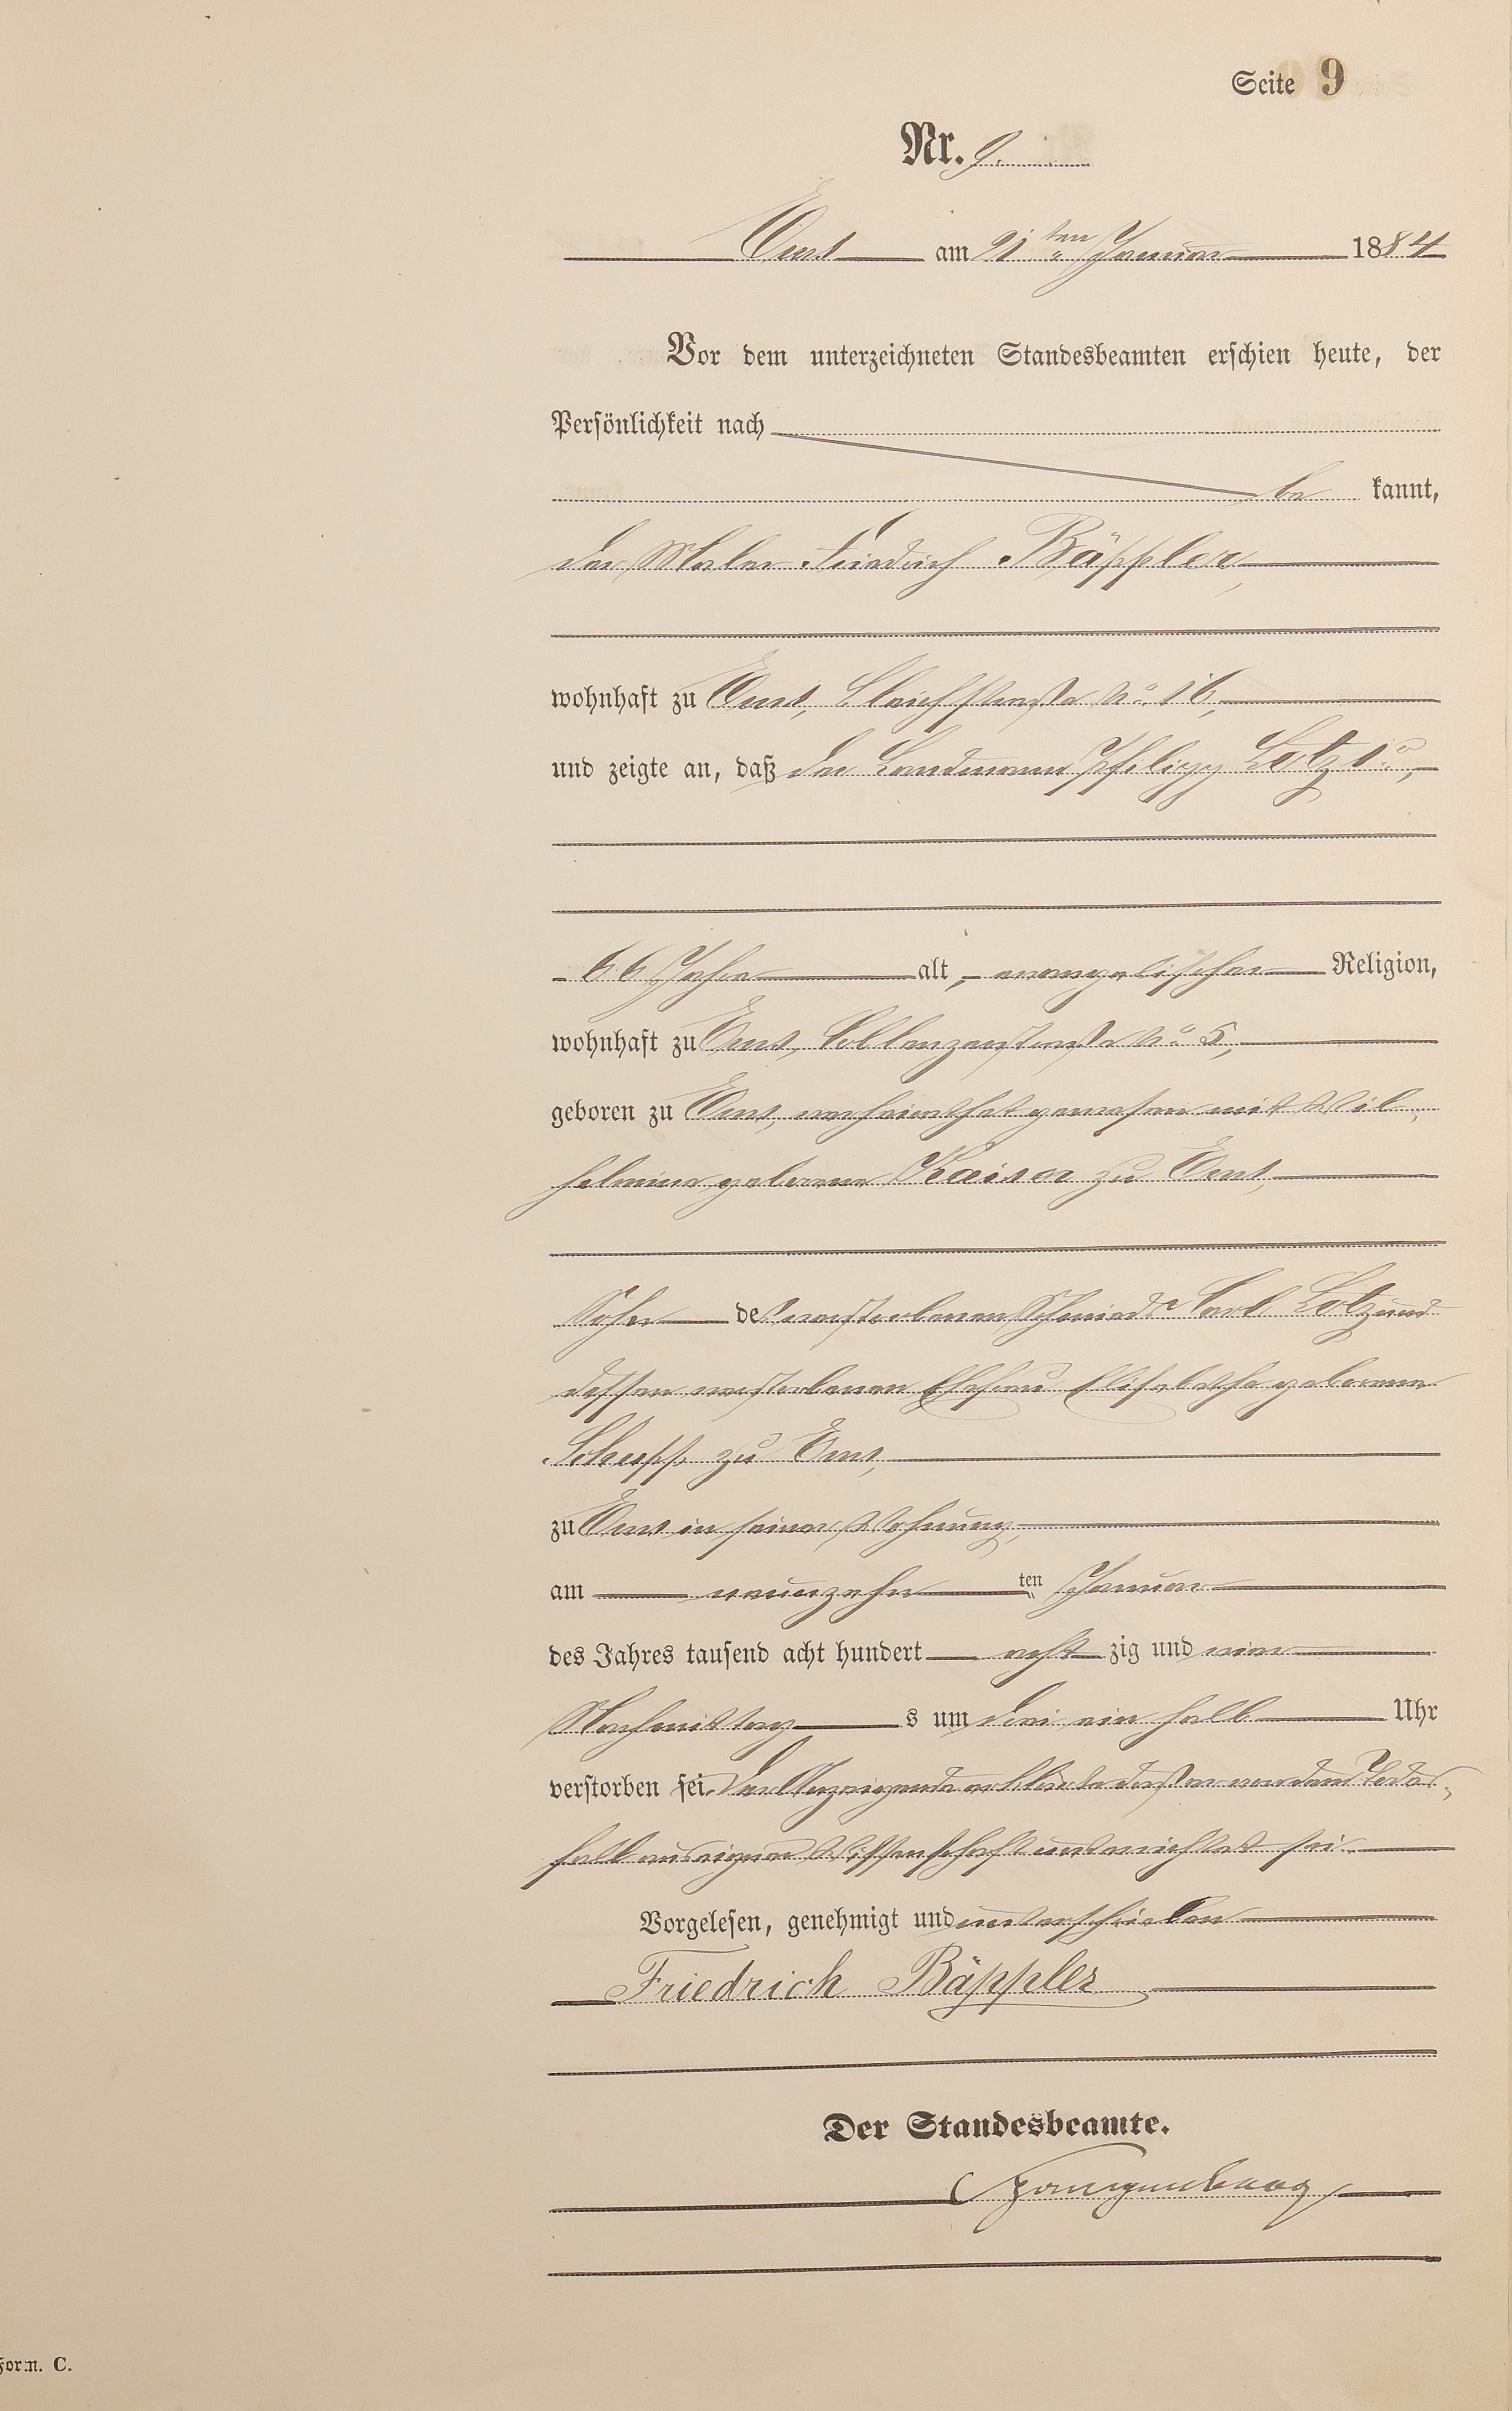 Seite 9
Nr. 9.
Ems am 21ten Januar 1884
Vor dem unterzeichneten Standesbeamten erschien heute, der
Persönlichkeit nach
be kannt,
der Maler Friedrich Bäppler,
wohnhaft zu Ems, Bleichstraße No. 16,
und zeigte an, daß der Landmann Philipp Lotz 1r,
66 Jahre alt, evangelischer Religion,
wohnhaft zu Ems, Coblenzerstraße No. 5,
geboren zu Ems, verheirathet gewesen mit Wil-
helmine geborene Kaiser zu Ems,
Sohn des verstorbenen Schmieds Carl Lotz und
dessen verstorbenen Ehefrau Elisabethe geborene
Schupp zu Ems,
zu Ems in seiner Wohnung,
am neunzehn ten Januar
des Jahres tausend acht hundert acht zig und vier
Nachmittag s um drei ein halb Uhr
verstorben sei. Der Anzeigende erklärte daß er von dem Todes-
fall aus eigener Wissenschaft unterrichtet sei.
Vorgelesen, genehmigt und unterschrieben
Friedrich Bäppler
Der Standesbeamte.
Form. C.